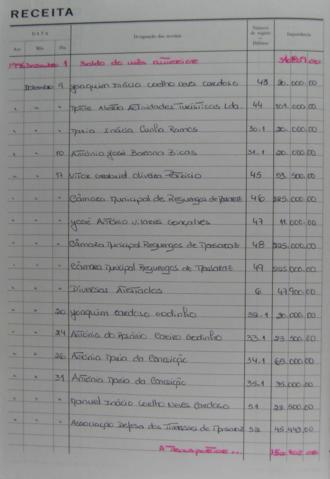 RECEITA
DATA Designação das receitas Número de registo Débitos Importância
Ano Mês Dia
Dezembro 1 Saldo do mês anterior
Dezembro 9 Joaquim Inácio Coelho Neves Cardoso 43 20.000.00
" " " Actividades Turísticas Lda. 44 101.000.00
" " " Maria Inácia Cunha Ramos 30.1 20.000.00
" " 10 António José Bicas 31.1 20.000.00
" " 17 Vítor Oliveira 45 500.00
" " " Câmara Municipal de Reguengos de Monsaraz 46 225.000.00
" " " José António Gonçalves 47 11.000.00
" " " Câmara Municipal Reguengos de Monsaraz 48 225.000.00
" " " Câmara Municipal Reguengos de Monsaraz 49 225.000.00
" " " Diversos Atestados 6 47.900.00
" " 20 Joaquim Cardoso Godinho 32.1 20.000.00
" " 24 António do Rosário Godinho 33.1 500.00
" " 26 António Maria da Conceição 34.1 65.000.00
" " 31 António Maria da Conceição 35.1 35.000.00
" " " Manuel Inácio Coelho Neves Cardoso 51 500.00
" " " Associação Defesa dos Interesses de Monsaraz 52
A Transportar...